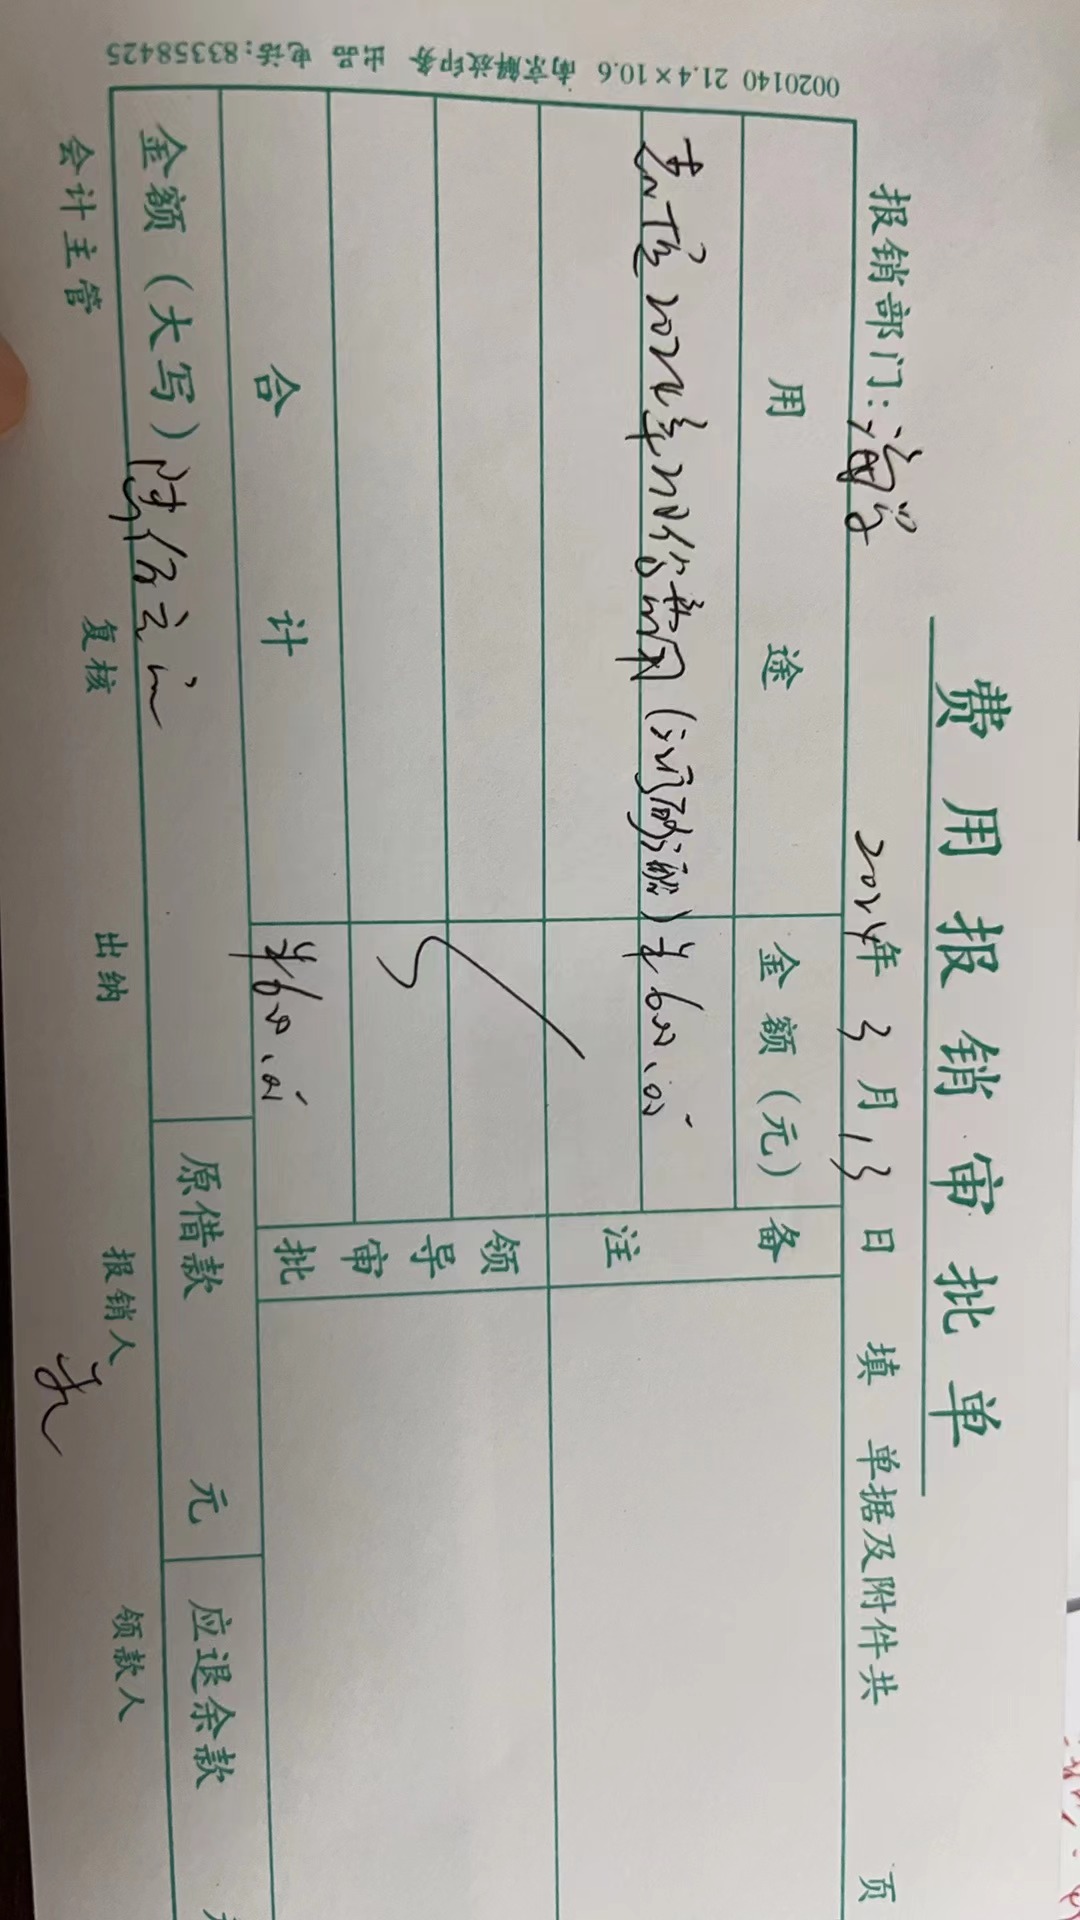 费用报销审批单
报销部门: 2024年 3月13日 填 单据及附件共 页
用 途 金额(元) 备
注
2024年2月份费用( ) ¥600.00
领导审批
合 计 ¥600.00
金额(大写)陆佰元 原借款 元 应退余款
会计主管 复核 出纳 报销人 领款人
0020140 21.4×10.6 南京解放印务 出品 电话:83358425